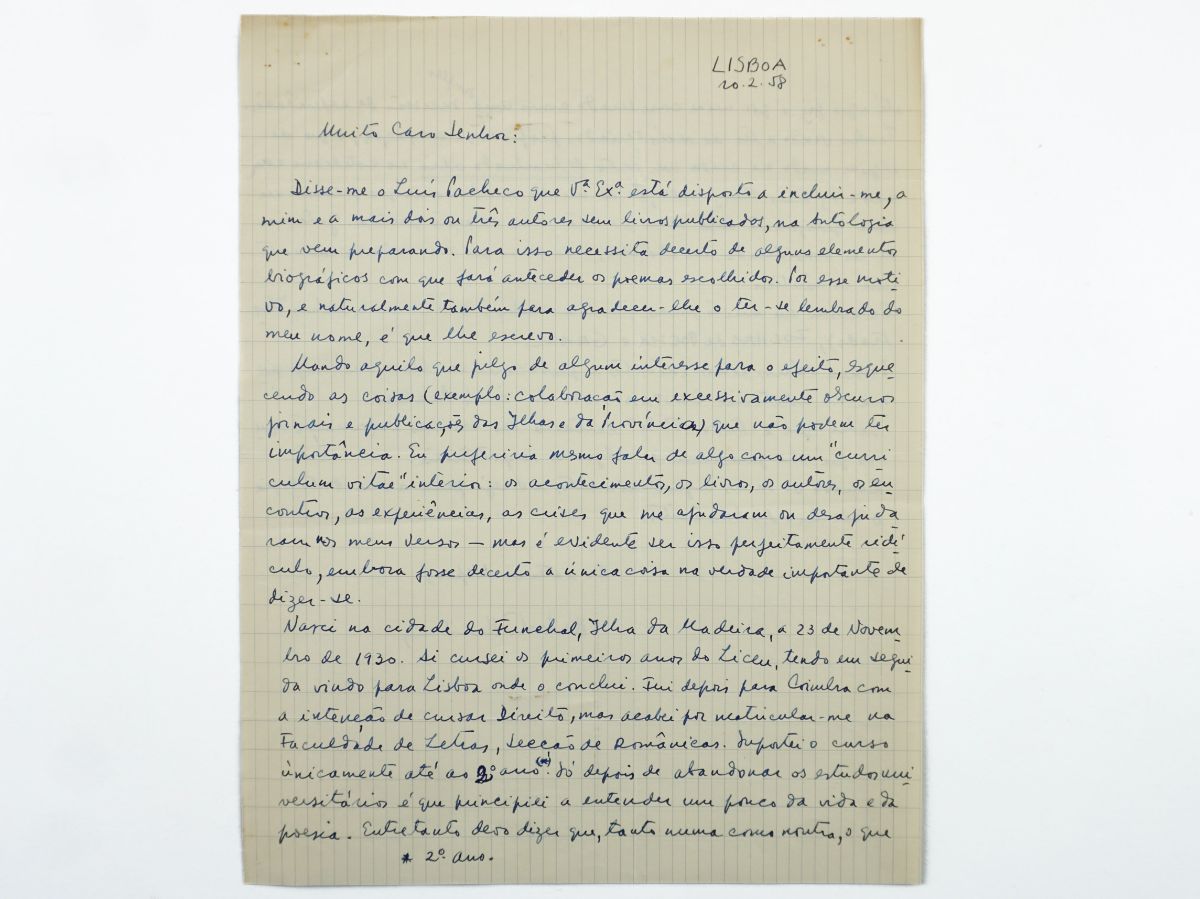 LISBOA
20.2.58
Muito Caro Senhor:
Disse-me o Luís Pacheco que Vª. Exª. está disposto a incluir-me, a
mim e a mais dois ou três autores sem livros publicados, na Antologia
que vem preparando. Para isso necessita decerto de alguns elementos
biográficos com que fará anteceder os poemas escolhidos. Por esse moti-
vo, e naturalmente também para agradecer-lhe o ter-se lembrado do
meu nome, é que lhe escrevo.
Mando aquilo que julgo de algum interesse para o efeito, esque-
cendo as coisas (exemplo: colaboração em excessivamente obscuros
jornais e publicações das Ilhas e da Província) que não podem ter
importância. Eu preferiria mesmo falar de algo como um "curri
culum vitae" interior: os acontecimentos, os livros, os autores, os en-
contros, as experiências, as crises que me ajudaram ou desajuda
ram nos meus versos — mas é evidente ser isso perfeitamente ridí-
culo, embora fosse decerto a única coisa na verdade importante de
dizer-se.
Nasci na cidade do Funchal, Ilha da Madeira, a 23 de Novem-
bro de 1930. Aí cursei os primeiros anos do Liceu, tendo em segui-
da vindo para Lisboa onde o conclui. Fui depois para Coimbra com
a intenção de cursar Direito, mas acabei por matricular-me na
Faculdade de Letras, Secção de Românicas. Suportei o curso
únicamente até ao 2º ano (*). Só depois de abandonar os estudos uni-
versitários é que principiei a entender um pouco da vida e da
poesia. Entretanto devo dizer que, tanto numa como noutra, o que
* 2º. ano.